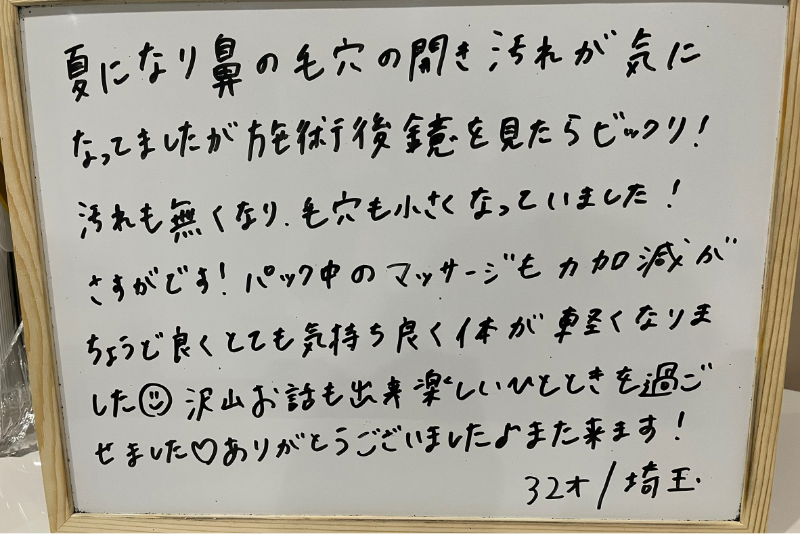 夏になり鼻の毛穴の開き汚れが気に
なってましたが施術後鏡を見たらビックリ！
汚れも無くなり、毛穴も小さくなっていました！
さすがです！パック中のマッサージも力加減が
ちょうど良くとても気持ち良く体が軽くなりま
した☺沢山お話も出来楽しいひとときを過ご
せました♡ありがとうございました♪また来ます！
32才/埼玉